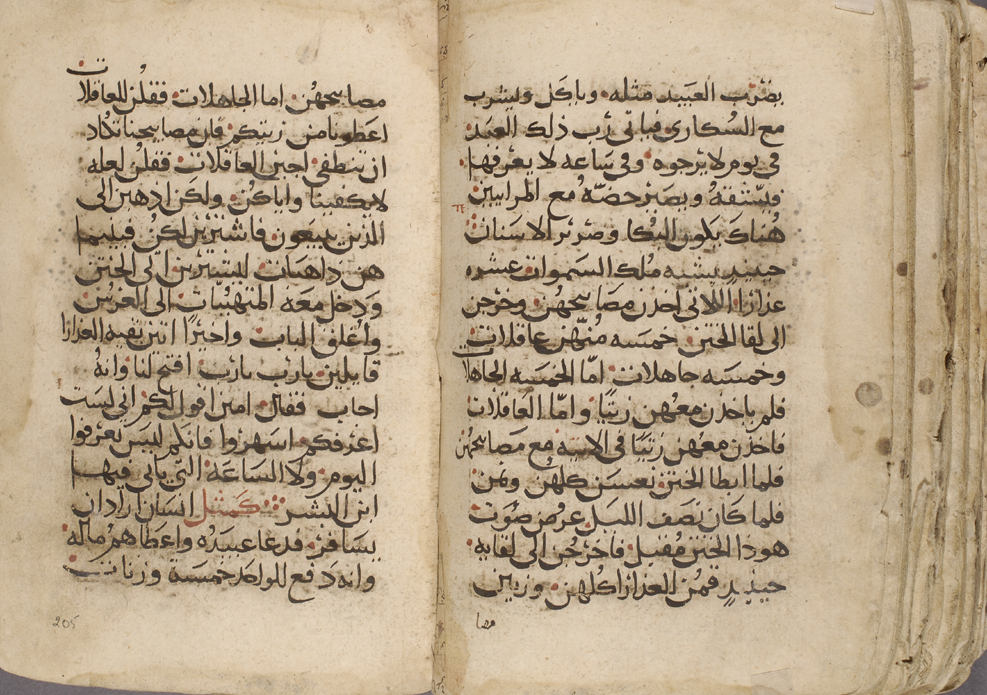 يضرب العبيد مثله وياكل ويشرب
مع السكارى فياتى رب ذلك العبد
فى يوم لا يرجوه وفى ساعه لا يعرفها
فيشقه ويصير حضه مع المراييين
هناك يكون البكا وصرير الاسنان
حينيد يشبه ملك السموات عشره
عذارا اللاتى اخذن مصابيحهن وخرجن
الى لقا الختن خمسه منهن عاقلات
وخمسه جاهلات امّا الخمسه الجاهلات
فلم ياخذن معهن زيتا وامّا العاقلات
فاخذن معهن زيتا فى الانيه مع مصابيحهن
فلما ابطا الختن نعسن كلهن ونمن
فلما كان نصف الليل عرض صوت
هوذا الختن مقبل فاخرجن الى لقايه
حينيد قمن العذارا كلهن وزين
مصا
مصابيحهن اما الجاهلات فقلن للعاقلات
اعطونا من زيتكم فان مصابيحنا تكاد
ان تنطفى اجبن العاقلات فقلن لعله
لا يكفينا واياكن ولكن اذهبن الى
الذين يبيعون فاشترين لكن فبينما
هن ذاهبات ليشترين اتى الختن
ودخل معه المتهيّات الى العرس
واغلق الباب واخيرًا اتين بقيه العذارا
قايلين يارب يارب افتح لنا وانه
اجاب فقال امين اقول لكم انى لست
اعرفكم اسهروا فانكم ليس تعرفوا
اليوم ولا الساعه التى ياتى فيها
ابن البشر كمثل انسان اراد ان
يسافر فدعا عبيده واعطاهم ماله
وانه دفع للواحد خمسة وزنات
205